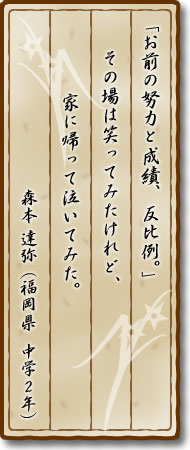 「お前の努力と成績、反比例。」
その場は笑ってみたけれど、
家に帰って泣いてみた。
森本 達弥（福岡県 中学２年）